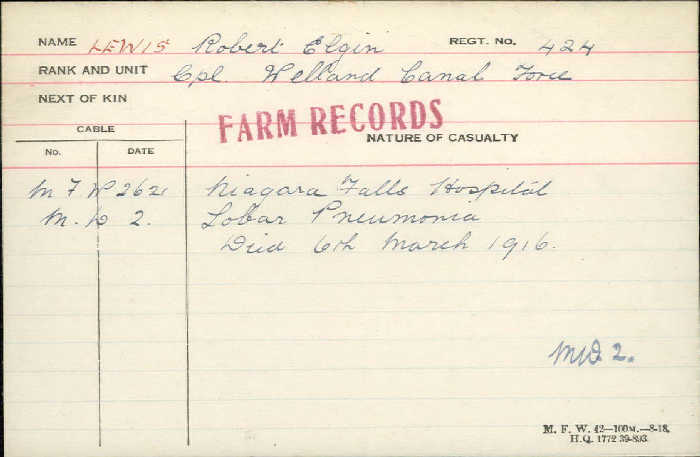 NAME LEWIS Robert Elgin REGT. No. 424
RANK AND UNIT Cpl. Welland Canal Force
NEXT OF KIN
FARM RECORDS
CABLE NATURE OF CASUALTY
No. DATE
M F W 2621 Niagara Falls Hospital
M. D 2. Lobar Pneumonia
Died 6th March 1916.
MD. 2.
M. F. W. 42—100M.—8-18.
H.Q. 1772 39-893.